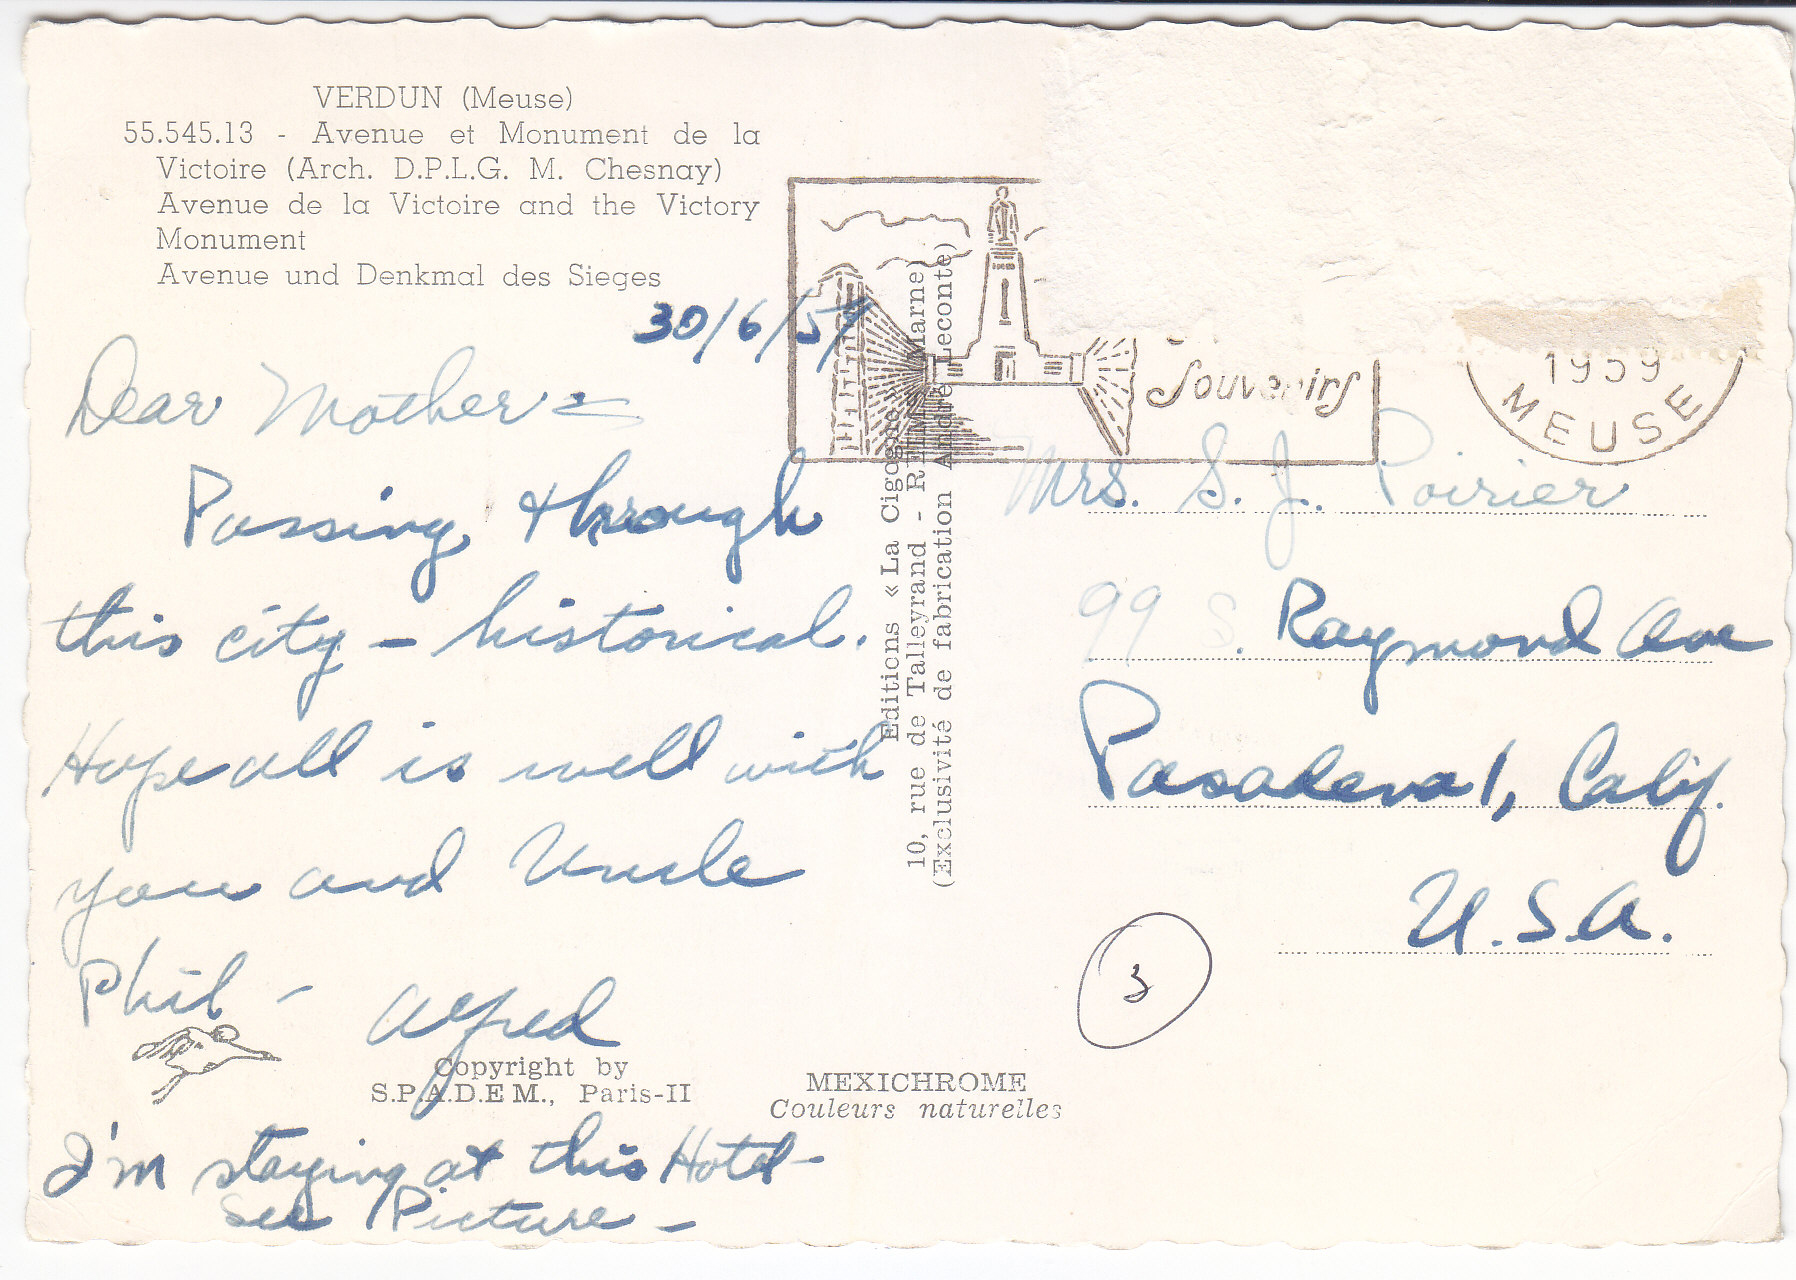 VERDUN (Meuse)
55.545.13 - Avenue et Monument de la
Victoire (Arch. D.P.L.G. M. Chesnay)
Avenue de la Victoire and the Victory
Monument
Avenue und Denkmal des Sieges
30/6/59
Dear Mother -
Passing through
this city - historical.
Hope all is well with
you and Uncle
Phil - Alfred
Copyright by
S.P.A.D.E.M., Paris-II
I'm staying at this Hotel -
See Picture -
MEXICHROME
Couleurs naturelles
Editions « La Cigogne »
10, rue de Talleyrand - REIMS (Marne)
(Exclusivité de fabrication André Leconte)
Souvenirs
1959
MEUSE
Mrs. S. J. Poirier
99 S. Raymond Ave
Pasadena 1, Calif.
U.S.A.
3